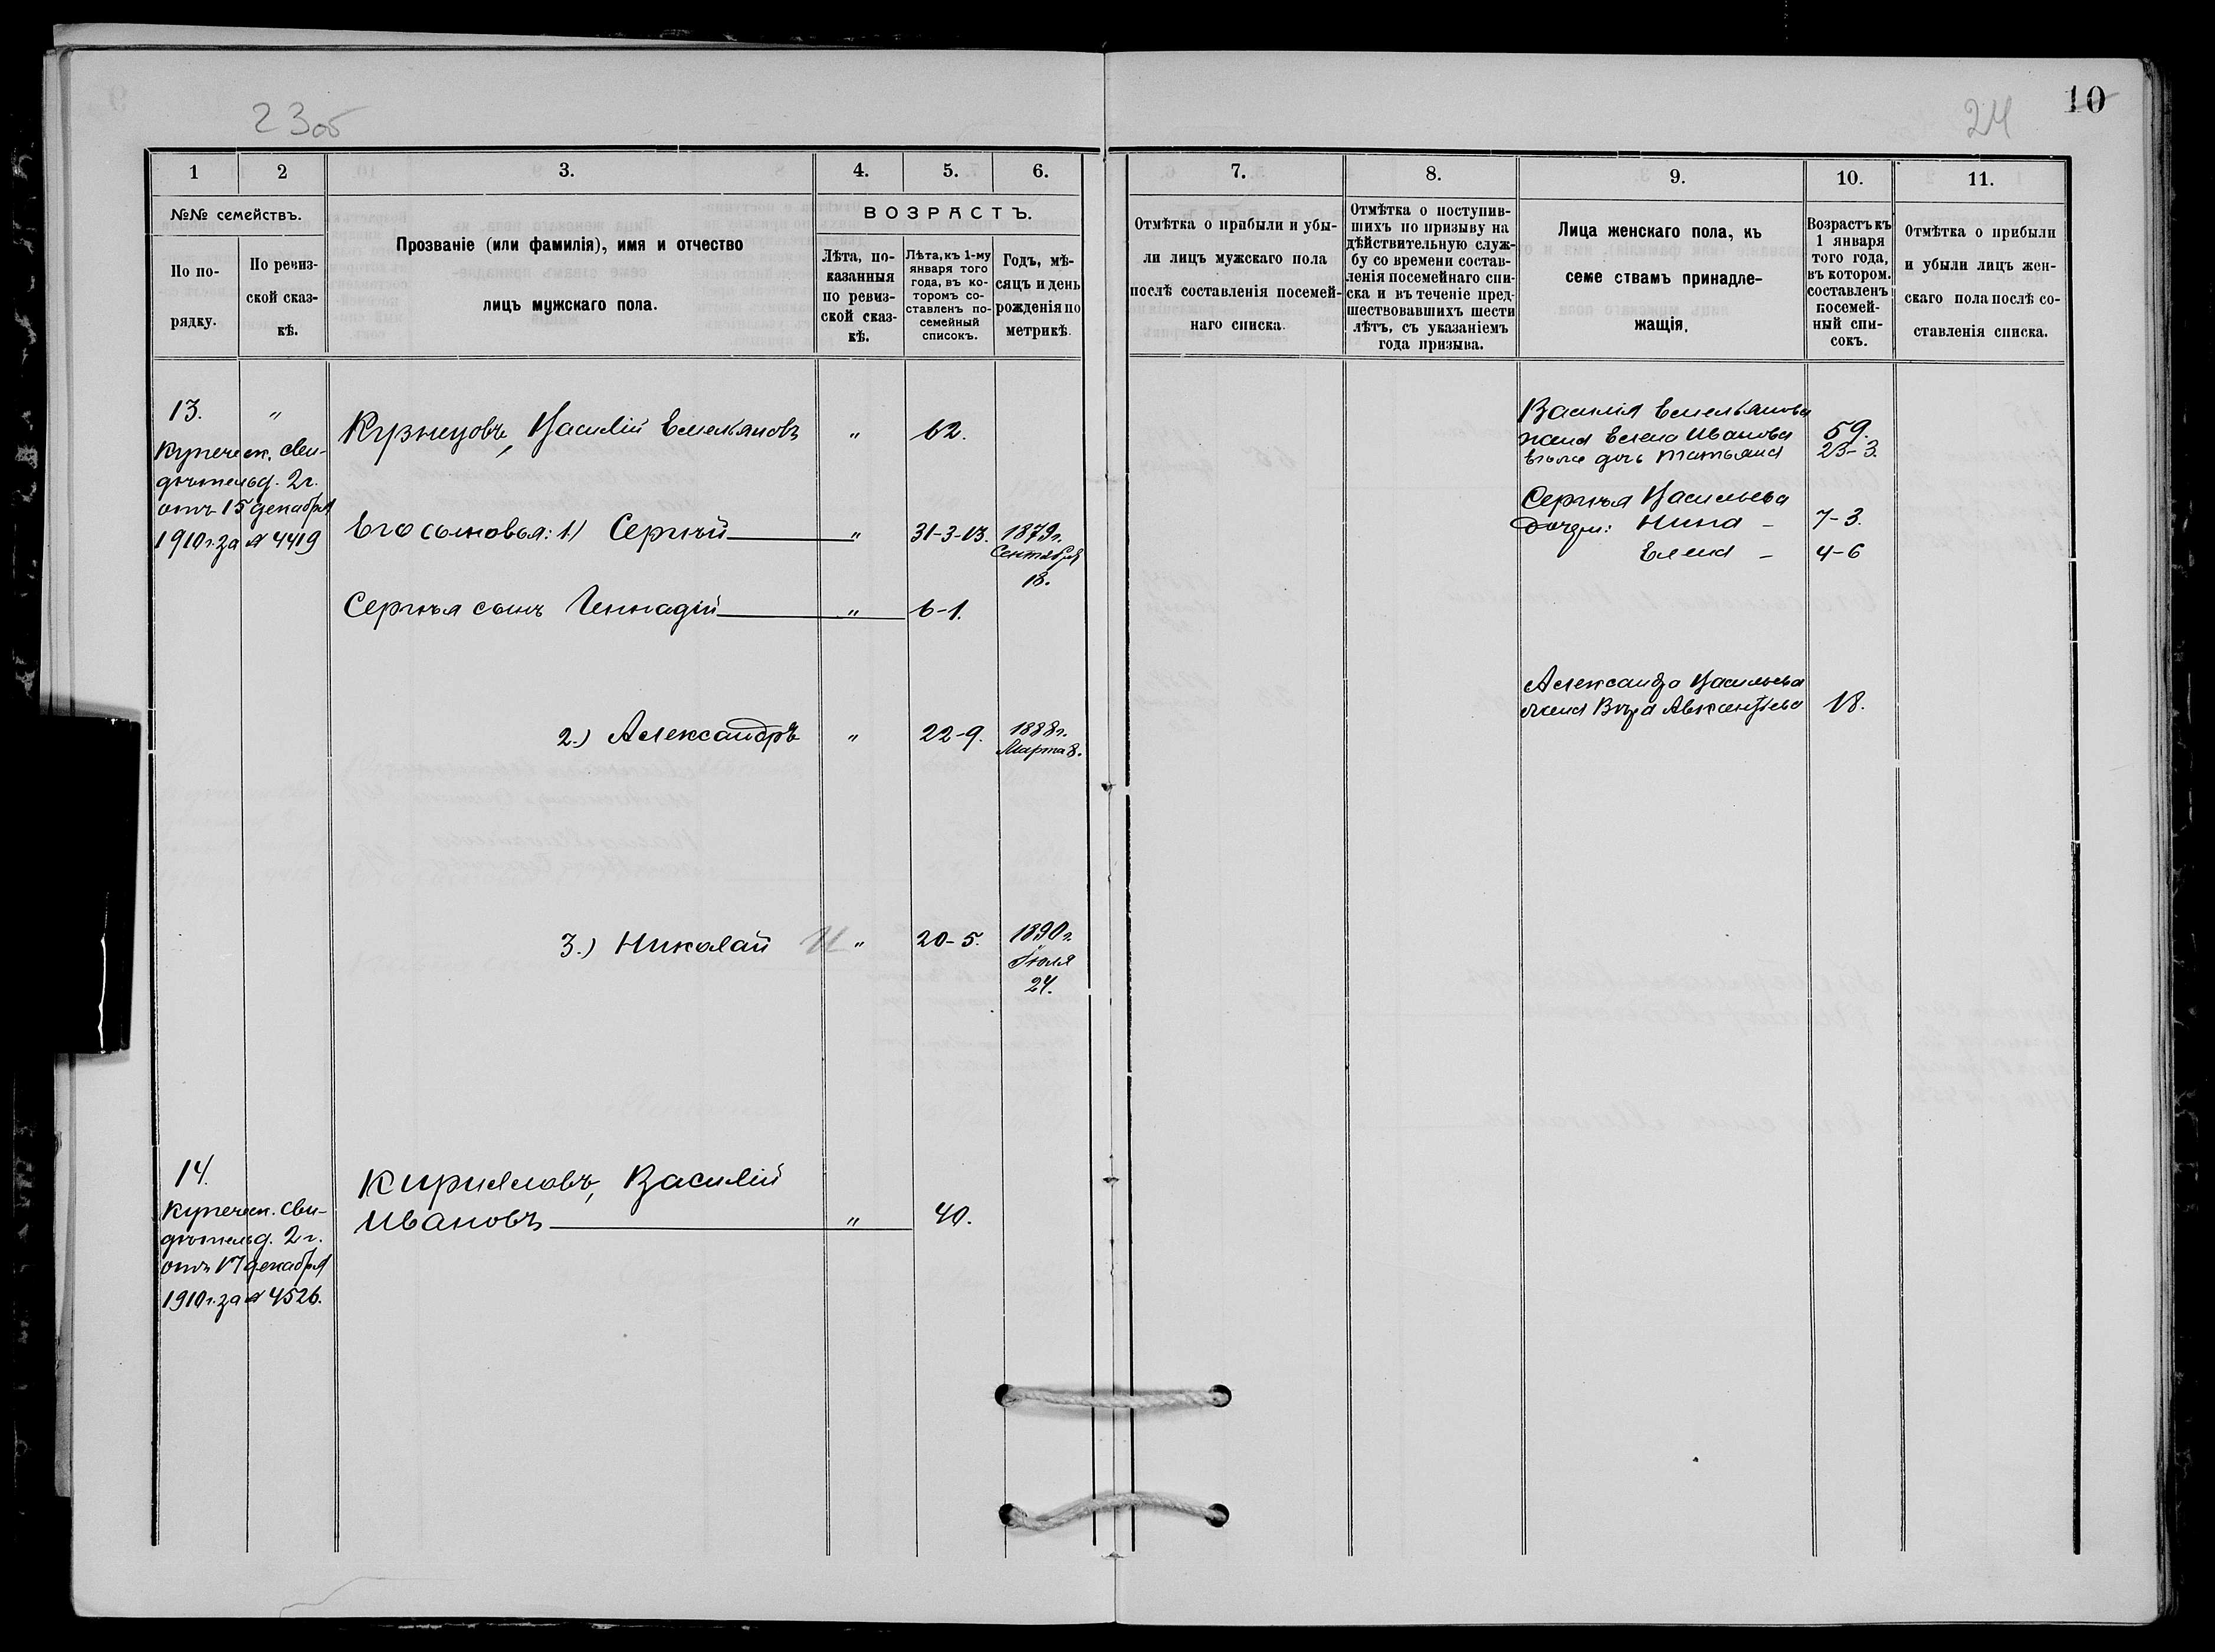 23об
24
10
1
2
3.
4.
5.
6.
7.
8.
9.
10.
11.
№№ семействъ.
По по-
рядку.
По ревиз-
ской сказ-
кѣ.
Прозваніе (или фамилія), имя и отчество
лицъ мужскаго пола.
ВОЗРАСТЪ.
Лѣта, по-
казанныя
по ревиз-
ской сказ-
кѣ.
Лѣта, къ 1-му
января того
года, въ ко-
торомъ со-
ставленъ по-
семейный
списокъ.
Годъ, мѣ-
сяцъ и день
рожденія по
метрикѣ.
Отмѣтка о прибыли и убы-
ли лицъ мужскаго пола
послѣ составленія посемей-
наго списка.
Отмѣтка о поступив-
шихъ по призыву на
дѣйствительную служ-
бу со времени состав-
ленія посемейнаго спи-
ска и въ теченіе пред-
шествовавшихъ шести
лѣтъ, съ указаніемъ
года призыва.
Лица женскаго пола, къ
семе ствамъ принадле-
жащія.
Возрастъ къ
1 января
того года,
въ котором.
составленъ
посемей-
ный спи-
сокъ.
Отмѣтка о прибыли
и убыли лицъ жен-
скаго пола послѣ со-
ставленія списка.
13. "
Купеческ. сви-
дѣтельст. 2 г.
отъ 15 декабря
1910 г. за № 4419
Кузнецовъ, Василій Емельяновъ " 62.
Василія Емельянова
жена Елена Иванова 59.
его же дочь Татьяна 23-3.
Его сыновья: 1) Сергѣй " 31-3-13. 1879 г.
Сентября
18.
Сергѣя Васильева
дочери: Нина - 7-3.
Елена - 4-6
Сергѣя сынъ Геннадій " 6-1.
2.) Александръ " 22-9. 1888 г.
Марта 8.
Александра Васильева
жена Вѣра Авксентьева 18.
3.) Николай И " 20-5. 1890 г.
Іюля
24.
14.
Купеческ. сви-
дѣтельст. 2 г.
отъ 17 декабря
1910 г. за № 4526.
Кирилловъ, Василій
Ивановъ " 40.